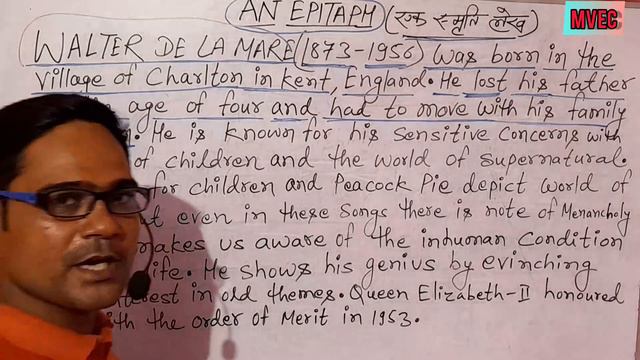 AN EPITAPH (एक स्मृति लेख)
MVEC
WALTER DE LA MARE (1873-1956) was born in the
village of Charlton in Kent, England. He lost his father
age of four and had to move with his family
He is known for his sensitive concerns with
of children and the world of supernatural.
for children and Peacock Pie depict world of
even in these songs there is note of Menancholy
makes us aware of the inhuman condition
life. He shows his genius by evinching
interest in old themes. Queen Elizabeth-II honoured
with the order of Merit in 1953.